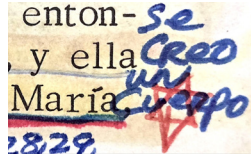 enton- se
, y ella CREO
un
María, Cuerpo
2829